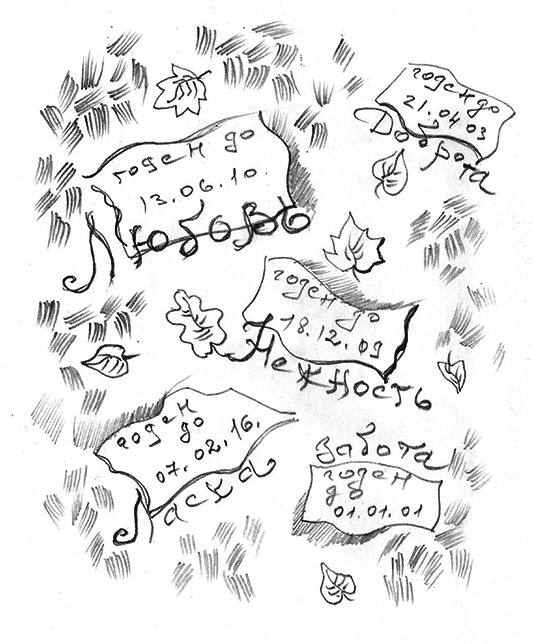 годен до
21.04.03
Доброта
годен до
13.06.10.
Любовь
годен до
18.12.09
Нежность
годен
до
07.02.16.
Ласка
Забота
годен
до
01.01.01